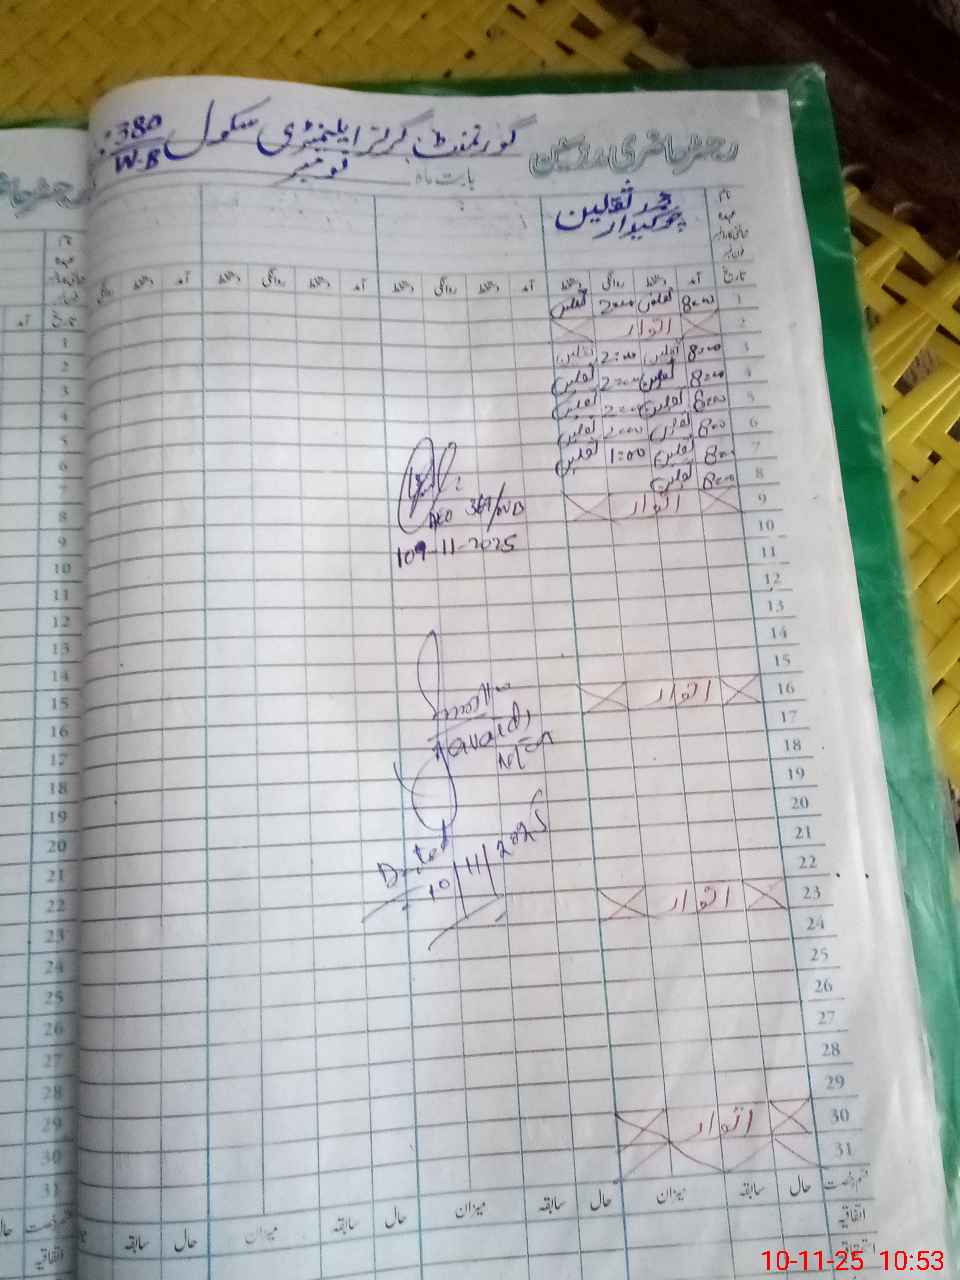 رجسٹر حاضری مدرسین گورنمنٹ گرلز ایلیمنٹری سکول 380/W.B
بابت ماہ نومبر
نام محمد ثقلین
عہدہ چوکیدار
تاریخ آمد دستخط روانگی دستخط آمد دستخط روانگی دستخط آمد دستخط روانگی دستخط آمد دستخط روانگی
1 8:00 ثقلین 2:00 ثقلین
2 اتوار
3 8:00 ثقلین 2:00 ثقلین
4 8:00 ثقلین 2:00 ثقلین
5 8:00 ثقلین 2:00 ثقلین
6 8:00 ثقلین 2:00 ثقلین
7 8:00 ثقلین 1:00 ثقلین
8 8:00 ثقلین
9 اتوار
10
11
12
13
14
15
16 اتوار
17
18
19
20
21
22
23 اتوار
24
25
26
27
28
29
30 اتوار
31
AEO 361/WB
-11-2025
Javaid
MEA
Dated
10/11/2025
قسم رخصت حال سابقہ میزان حال سابقہ میزان حال سابقہ میزان حال سابقہ
اتفاقیہ
نام
عہدہ
تاریخ آمد
1
2
3
4
5
6
7
8
9
10
11
12
13
14
15
16
17
18
19
20
21
22
23
24
25
26
27
28
29
30
31
قسم رخصت حال
اتفاقیہ
10-11-25 10:53